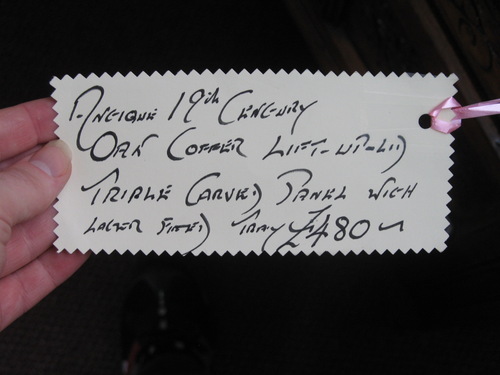 Antique 19th Century
Oak Coffer Lift-up-lid
Triple Carved Panel with
Later Fitted Tray £480